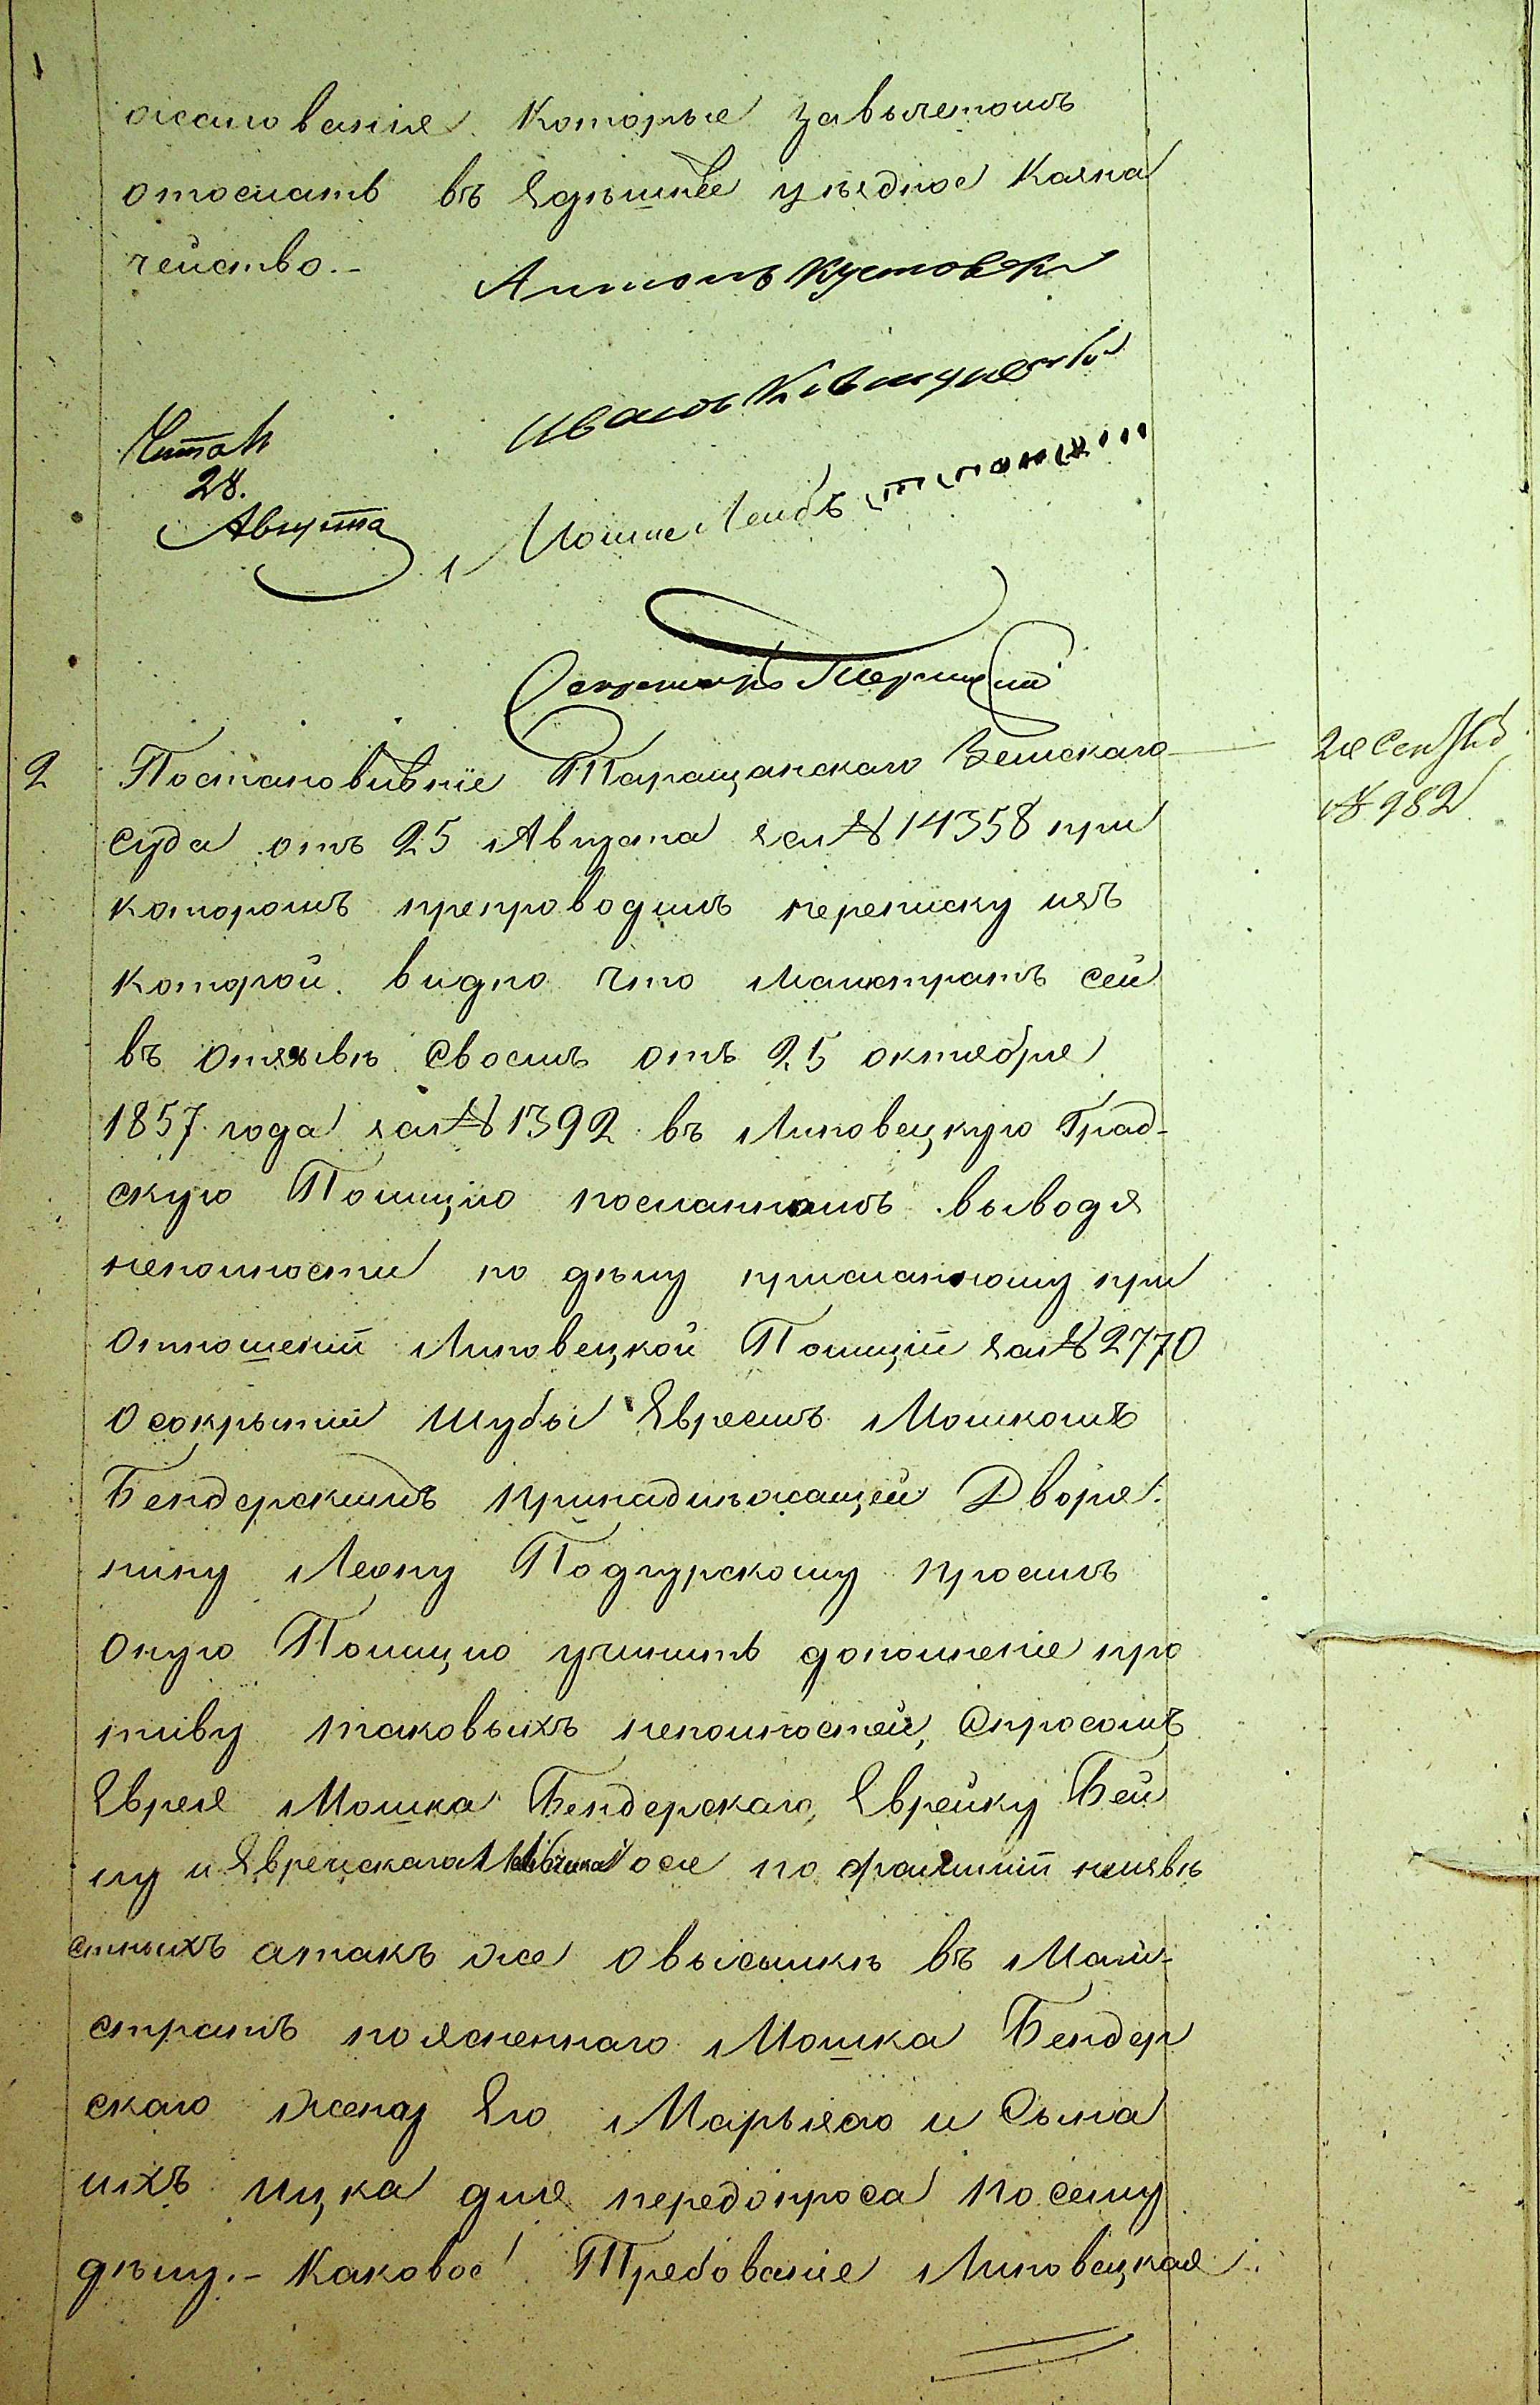 жалованія. Которые завычетомъ
отослать въ Здѣшнѣе уѣздное Казна
чейство.-
Антонъ Кустовск
Иванъ
Читалъ
28.
Августа
Мошке Лейбъ
Секретарь
2 Постановивніе Таращанскаго Земскаго
Суда отъ 25 Августа за № 14358 при
которомъ препроводилъ переписку изъ
которой видно что Магистратъ сей
въ отзывѣ своемъ отъ 25 октебря
1857 года за № 1392 въ Липовецкую Град-
скую Полицію посланномъ выводя
неполности по дѣлу присланному при
отношеніи Липовецкой Полиціи за № 2770
о сокрытіи шубы Евреемъ Мошкомъ
Бендерскимъ принадлѣжащей Дворя-
нину Леону Подгурскому просилъ
оную Полицію учинить дополненіе про
тиву таковыхъ неполностей, Спросомъ
Еврея Мошка Бендерскаго, Еврейку Бей
лу и Еврейскаго по фамиліи неизвѣ
стныхъ атакъ же о высылкѣ въ Маги-
стратъ поясненнаго Мошка Бендер
скаго жену Его Марьясю и Сына
ихъ Ицка для передопроса по сему
дѣлу.- Каковое Требованіе Липовецкая
№ 982